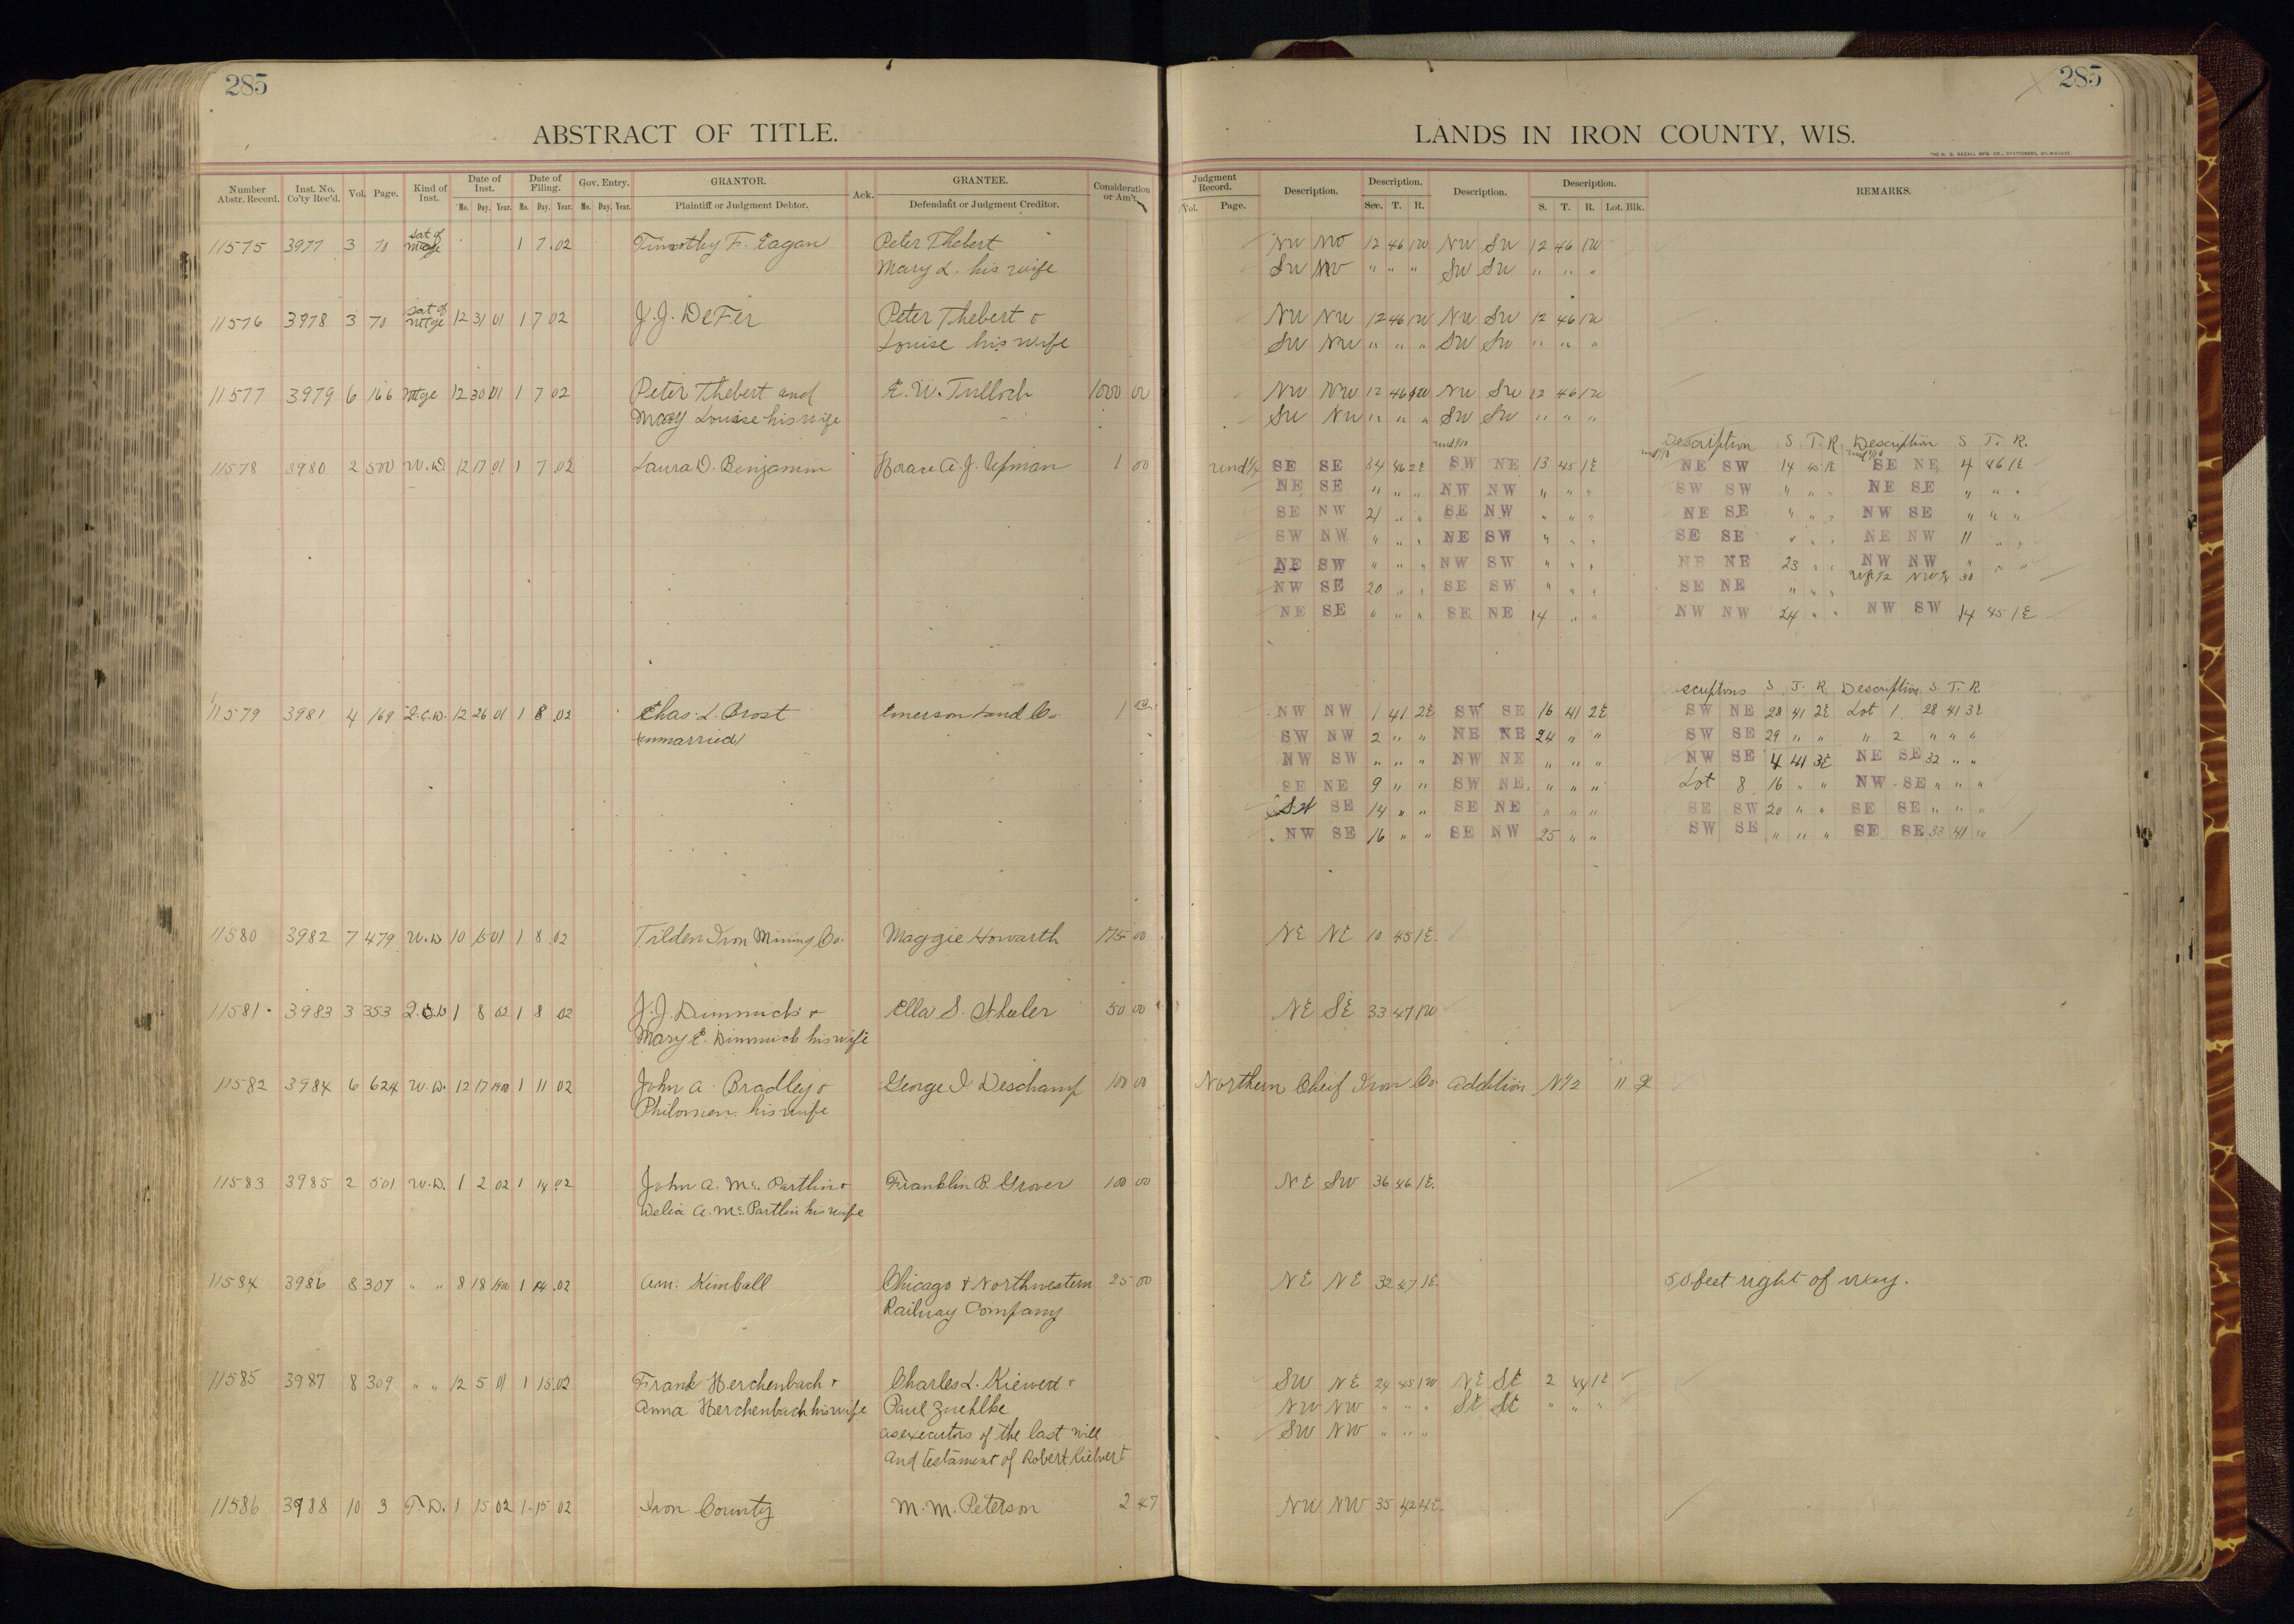 285
285
ABSTRACT OF TITLE.
LANDS IN IRON COUNTY, WIS.
THE H. G. RAZALL MFG. CO., STATIONERS, MILWAUKEE.
Number Abstr. Record. Inst. No. Co'ty Rec'd. Vol. Page. Kind of Inst. Date of Inst. Mo. Day. Year. Date of Filing. Mo. Day. Year. Gov. Entry. Mo. Day. Year. GRANTOR. Plaintiff or Judgment Debtor. Ack. GRANTEE. Defendant or Judgment Creditor. Consideration or Am't.
Judgment Record. Vol. Page. Description. Description. Sec. T. R. Description. Description. S. T. R. Lot. Blk. REMARKS.
11575 3977 3 70 Sat of Mtge 1 7 02 Timothy F. Eagan Peter Thebert NW NW 12 46 1W NW SW 12 46 1W
Mary L. his wife SW NW " " " SW SW " " "
11576 3978 3 70 Sat of Mtge 12 31 01 1 7 02 J. J. DeFer Peter Thebert & NW NW 12 46 1W NW SW 12 46 1W
Louise his wife SW NW " " " SW SW " " "
11577 3979 6 166 Mtge 12 30 01 1 7 02 Peter Thebert and E. W. Tulloch 1000 00 NW NW 12 46 1W NW SW 12 46 1W
Mary Louise his wife SW NW " " " SW SW " " "
und 1/10 Description S. T. R. Description S T. R.
11578 3980 2 500 W. D 12 17 01 1 7 02 Laura D. Benjamin Horace A. J. Upman 1 00 und SE SE 34 46 2E SW NE 13 45 1E und 1/10 NE SW 14 45 1E und 1/10 SE NE 4 46 1E
NE SE " " " NW NW " " " SW SW " " " NE SE " " "
SE NW 21 " " SE NW " " " NE SE " " " NW SE " " "
SW NW " " " NE SW " " " SE SE " " " NE NW 11 " "
NE SW " " " NW SW " " " NE NE 23 " " NW NW " " "
NW SE 20 " " SE SW " " " SE NE " " " NW 30
NE SE " " " SE NE 14 " " NW NW 24 " " NW SW 14 45 1E
ecriptions S. T. R Description S. T. R
11579 3981 4 169 Q.C.D. 12 26 01 1 8 02 Chas. L. Brost Emerson Land Co. 1 00 NW NW 1 41 2E SW SE 16 41 2E SW NE 28 41 2E Lot 1 28 41 3E
(unmarried) SW NW 2 " " NE NE 24 " " SW SE 29 " " " 2 " " "
NW SW " " " NW NE " " " NW SE 4 41 3E NE SE 32 " "
SE NE 9 " " SW NE " " " Lot 8 16 " " NW SE " " "
SW SE 14 " " SE NE " " " SE SW 20 " " SE SE " " "
NW SE 16 " " SE NW 25 " " SW SE " " " SE SE 33 41 "
11580 3982 7 479 W. D 10 15 01 1 8 02 Tilden Iron Mining Co. Maggie Howarth 175 00 NE NE 10 45 1E
11581 3983 3 353 Q.C.D 1 8 02 1 8 02 J. J. Dimmick & Ella S. 50 00 NE SE 33 47 1W
Mary E. Dimmick his wife
11582 3984 6 624 W. D. 12 17 1900 1 11 02 John A. Bradley & George I Deschamp 100 00 Northern Cheif Iron Co Addition No 2 11
Philomen his wife
11583 3985 2 501 W. D. 1 2 02 1 14 02 John A. Mc Partlin & Franklin B. Grover 100 00 NE SW 36 46 1E.
Delia A. Mc Partlin his wife
11584 3986 8 307 " " 8 18 1900 1 14 02 Am. Kimball Chicago & Northwestern 25 00 NE NE 32 47 1E 50 feet right of way.
Railway Company
11585 3987 8 309 " " 12 5 01 1 15 02 Frank Herchenbach & Charles L. Kiewert & SW NE 24 45 1W NE SE 2 44 1E
Anna Herchenbach his wife Paul Zuehlke NW NW " " " SE SE " " "
as executors of the last will SW NW " " "
and testament of Robert Kiewert
11586 3988 10 3 T. D. 1 15 02 1 15 02 Iron County M. M. Peterson 2 47 NW NW 35 42 4E